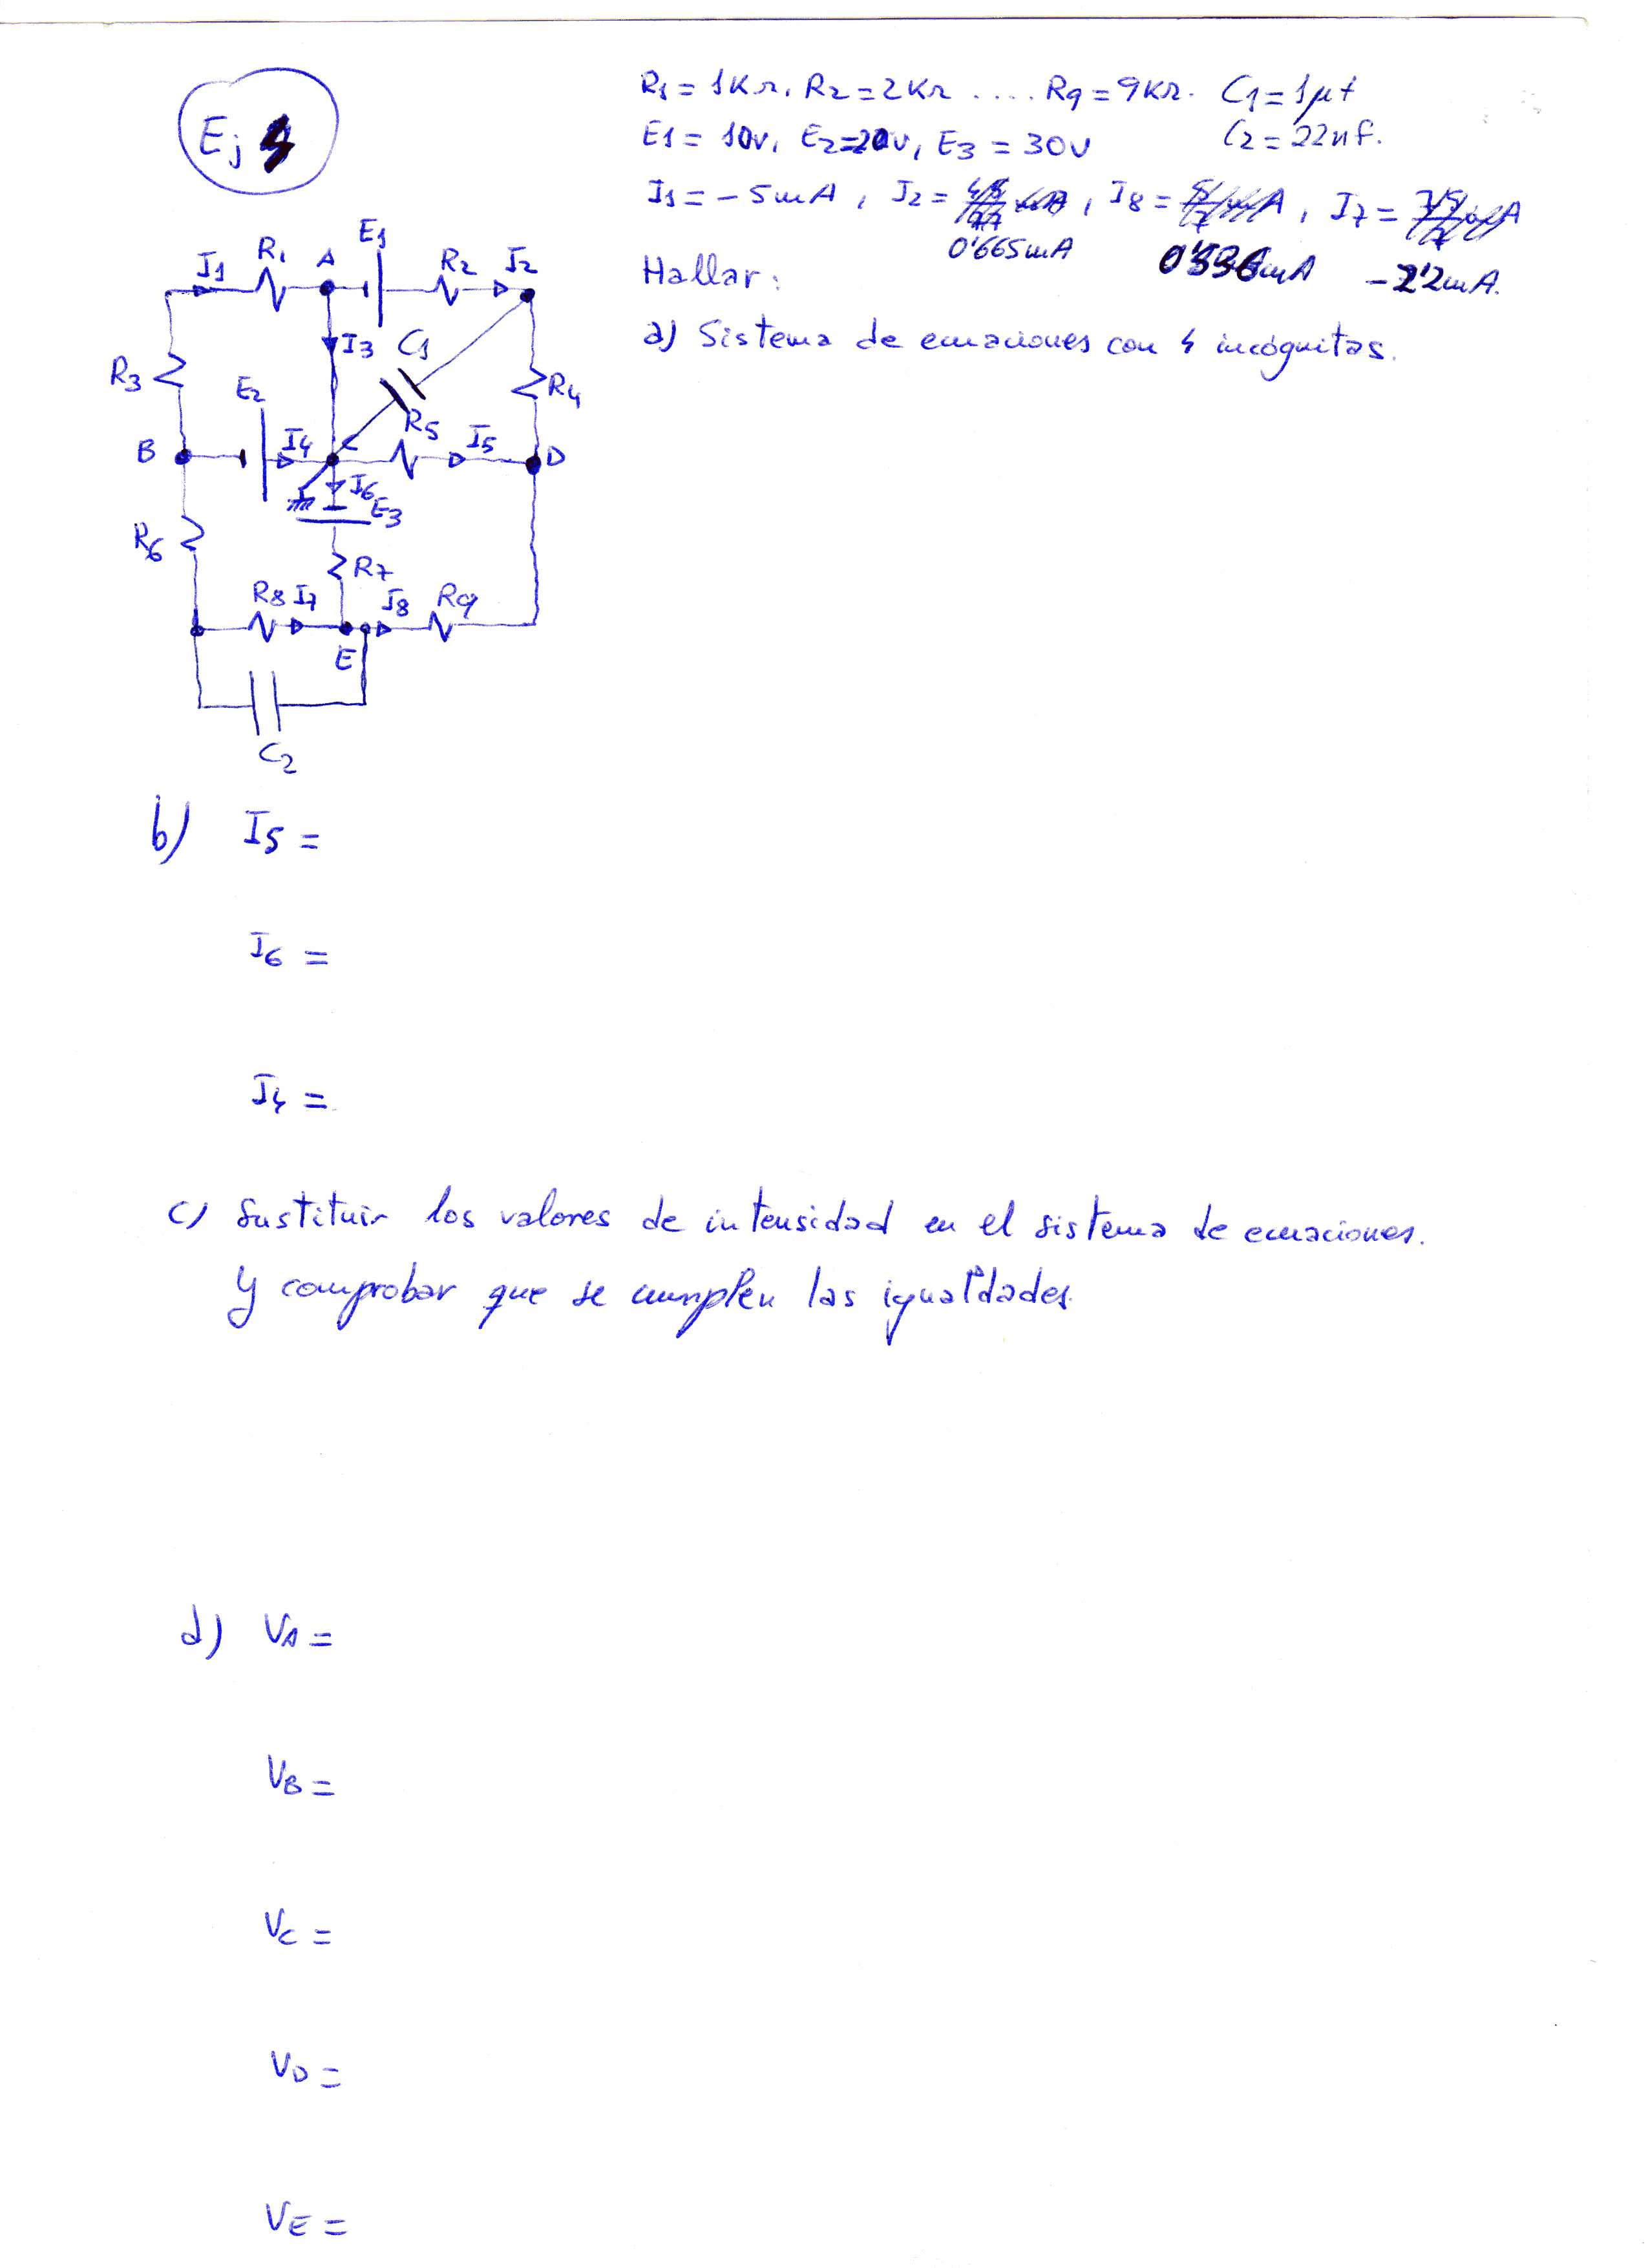 Ej 4
R1 = 1KΩ, R2 = 2KΩ .... R9 = 9KΩ. C1 = 1μf
E1 = 10v, E2 = 20v, E3 = 30v C2 = 22nf.
I1 = -5mA, I2 = , I8 = A, I7 = A
0'665mA 0'336mA -2'2mA.
Hallar:
a) Sistema de ecuaciones con 4 incógnitas.
I1 R1 A E1 R2 I2
I3 C1
R3 E2 R4
B I4 C R5 I5 D
I6 E3
R6
R7
R8 I7 I8 R9
E
C2
b) I5 =
I6 =
I4 =
c) Sustituir los valores de intensidad en el sistema de ecuaciones.
y comprobar que se cumplen las igualdades.
d) VA =
VB =
VC =
VD =
VE =